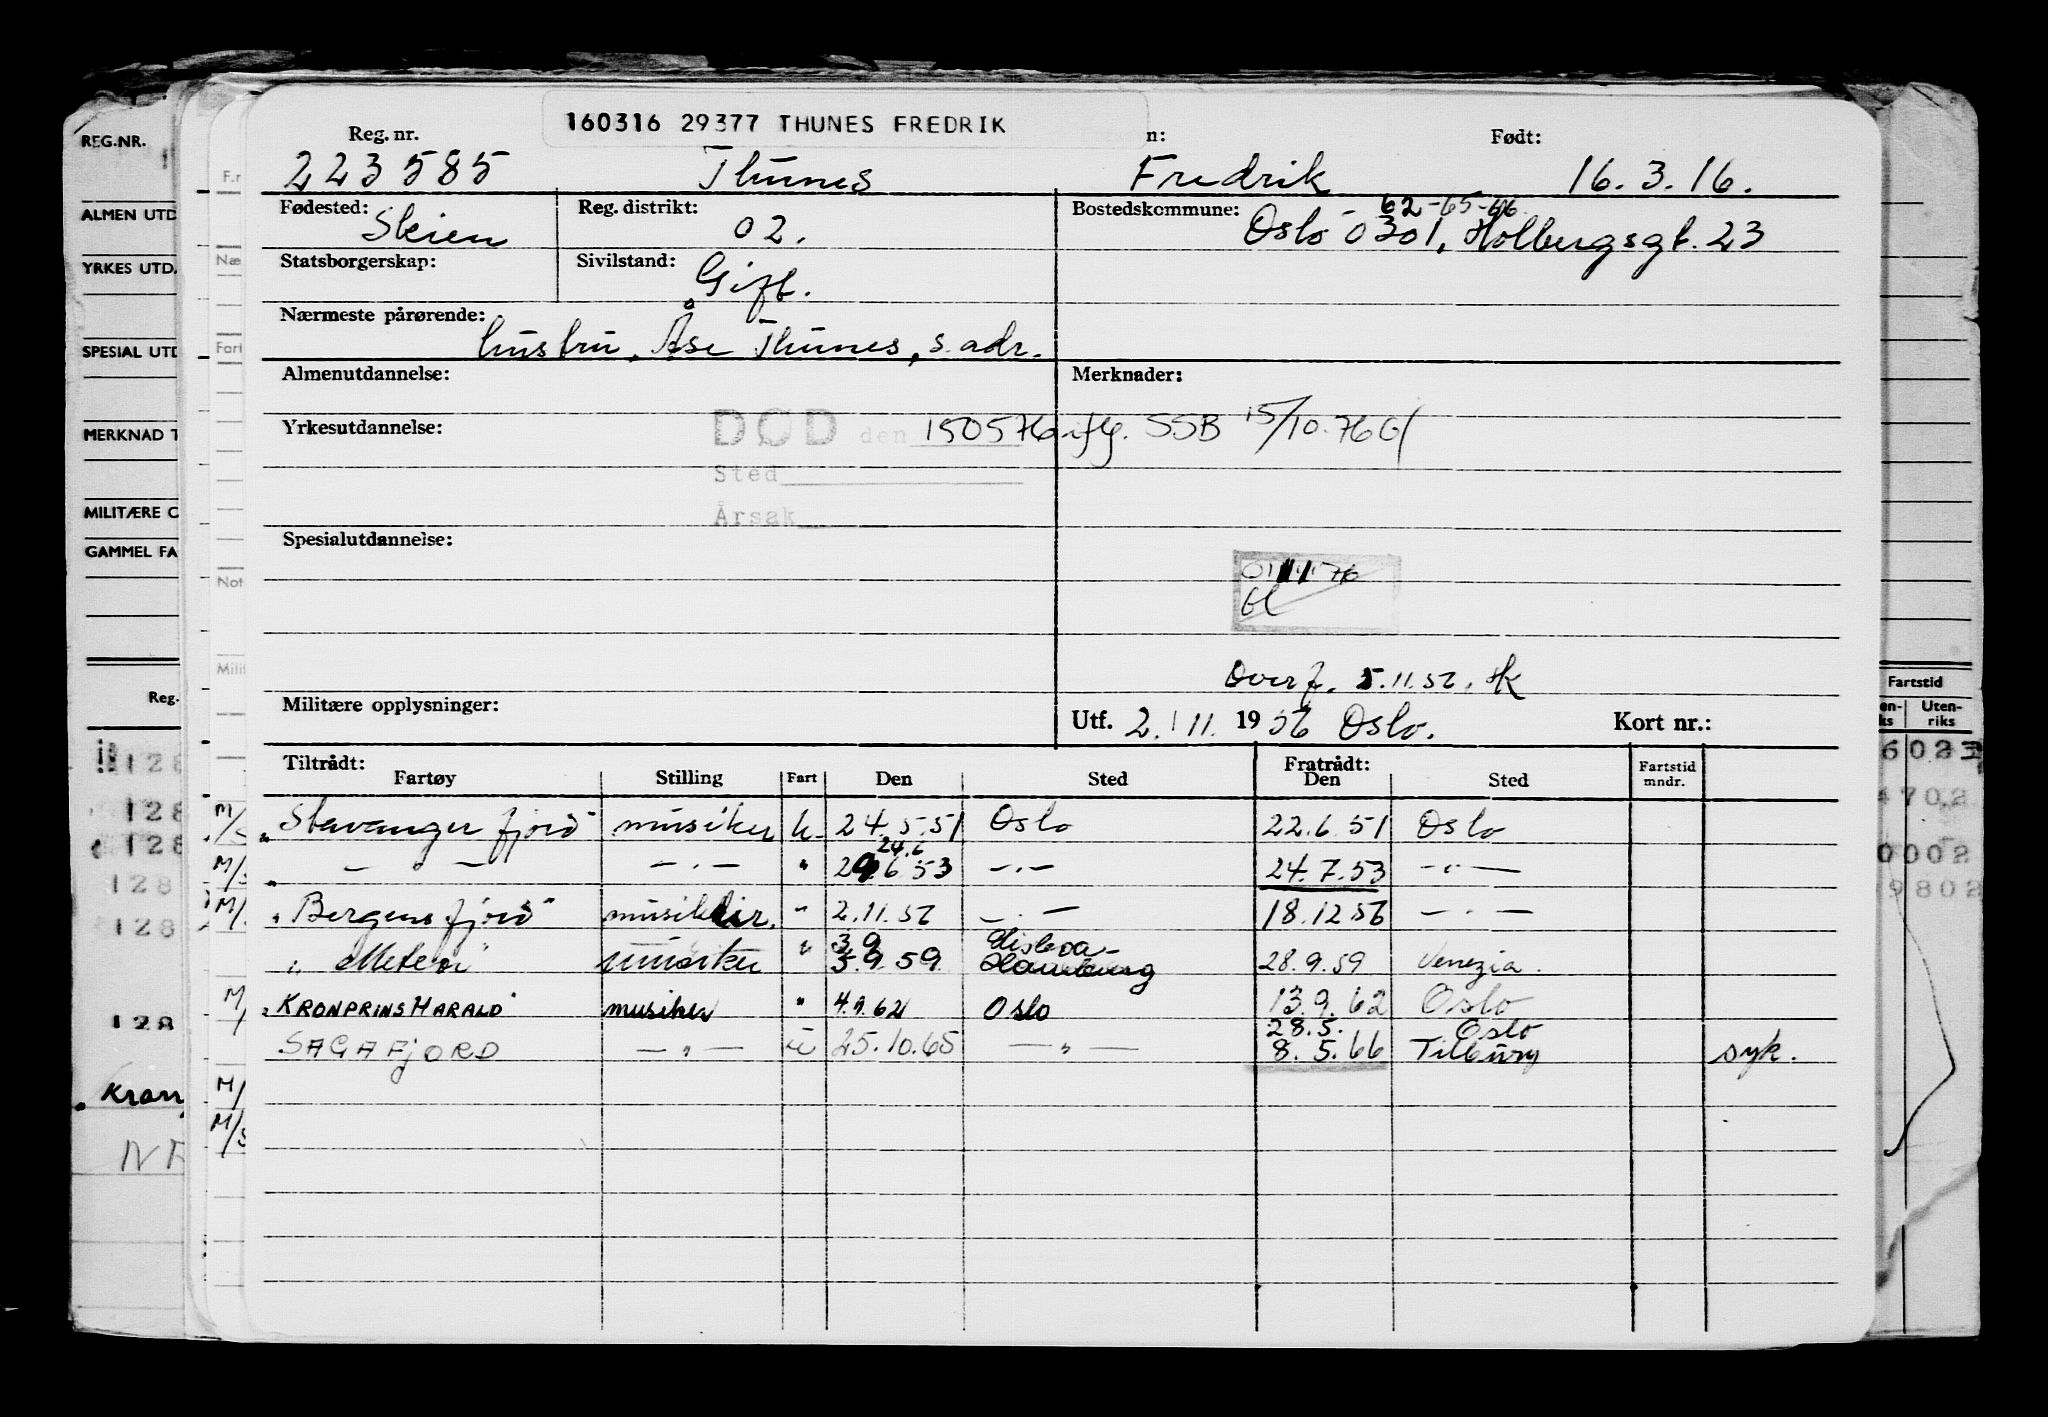 160316 29377 THUNES FREDRIK
REG.NR.
Reg. nr.
n:
Født:
223585 Thunes Fredrik 16.3.16.
F.r
ALMEN UTD
Fødested: Skien
Reg. distrikt: 02.
62-65-66
Bostedskommune: Oslo 0301, Holbergsgt. 23
YRKES UTD.
Næ
Statsborgerskap:
Sivilstand: Gift.
Nærmeste pårørende:
hustru, Åse Thunes, s. adr.
SPESIAL UTD
Fort
Almenutdannelse:
Merknader:
MERKNAD T
Yrkesutdannelse:
DØD den 150576 iflg. SSB 15/10.76
Sted
Årsak
MILITÆRE O
GAMMEL FA
Spesialutdannelse:
Not
Milit
Overf. 5.11.56.
Fartstid
Reg.
Militære opplysninger:
Utf. 2. 11. 1956 Oslo.
Kort nr.:
en-
ks
Uten-
riks
Tiltrådt:
Fratrådt:
Fartøy Stilling Fart Den Sted Den Sted Fartstid mndr.
128
6023
M/S "Stavangerfjord" musiker u. 24.5.51 Oslo 22.6.51 Oslo
128
4702
24.6
M/S " — " — — " — " 29.6.53 — " — 24.7.53 — " —
128
0002
128
9802
M/ "Bergensfjord" musiker. " 2.11.56 — " — 18.12.56 — " —
128
3.9
Lisboa
" Meteor" musiker " 5.9.59 Hamburg 28.9.59 Venezia.
M/ "KRONPRINS HARALD" musiker " 4.9.62 Oslo 13.9.62 Oslo
128
28.5. Oslo
SAGAFJORD — " — u 25.10.65 — " — 8.5.66 Tilbury syk.
M/
Kron
M/S